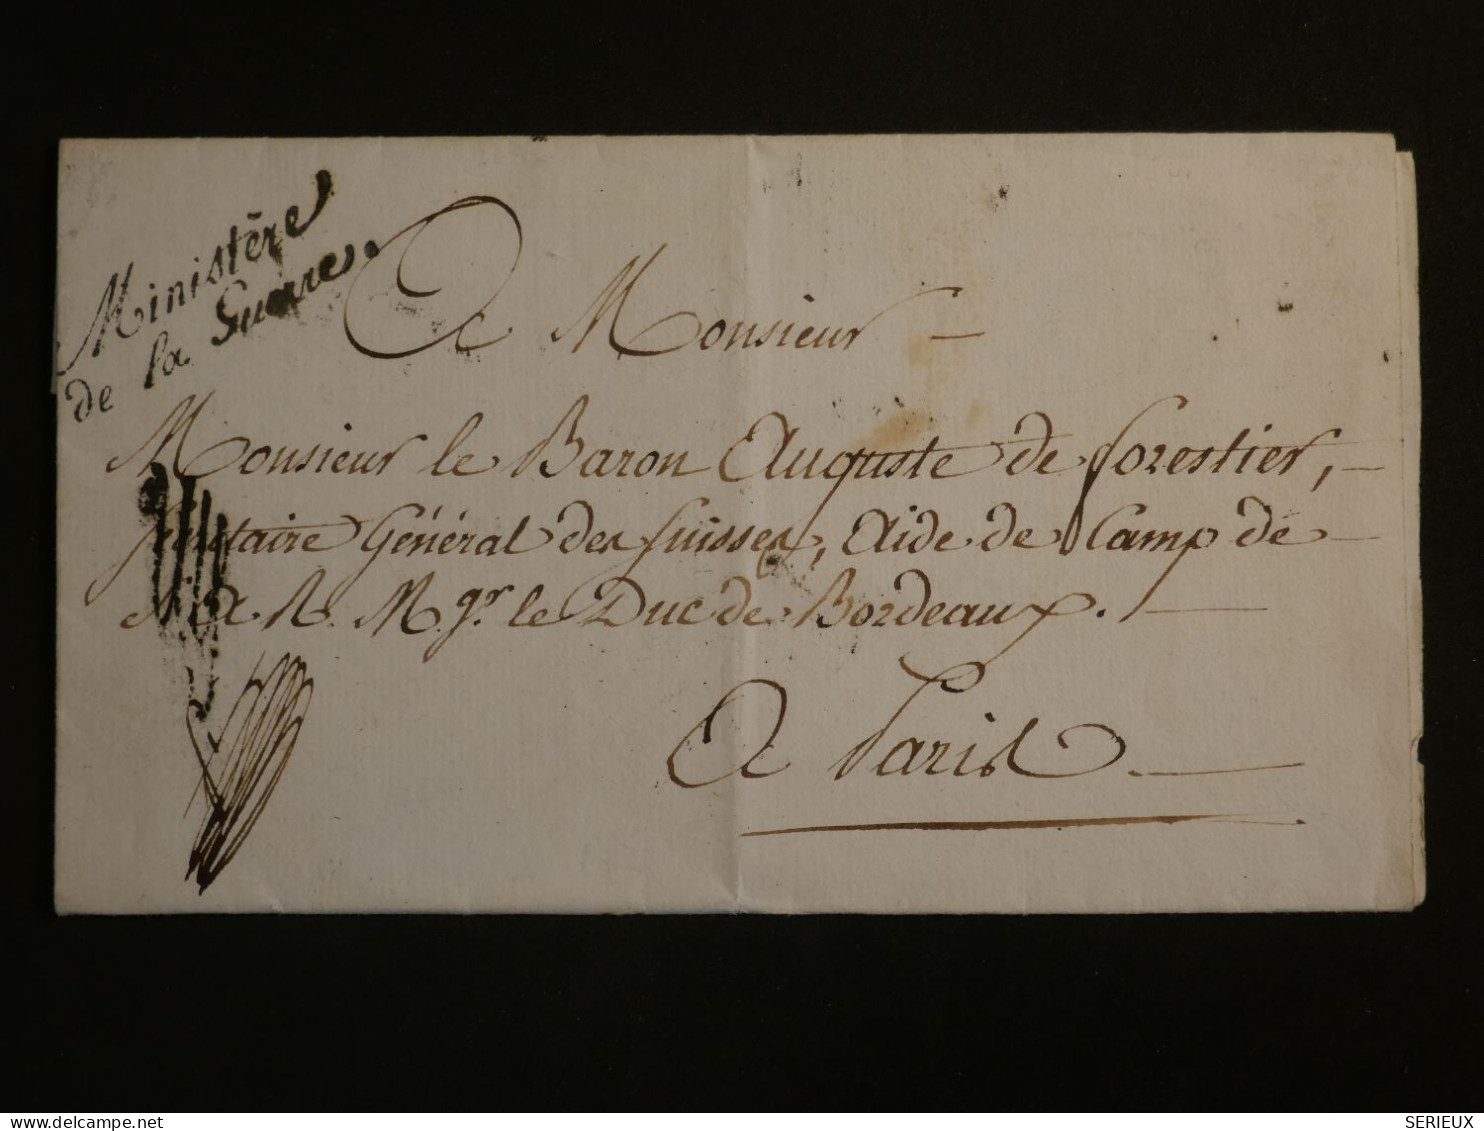 Ministère
de la Guerre.
A Monsieur
Monsieur le Baron Auguste de Forestier,
Secrétaire Général des Suisses, Aide de Camp de
S. A. R. Mgr. le Duc de Bordeaux.
A Paris
SERIEUX